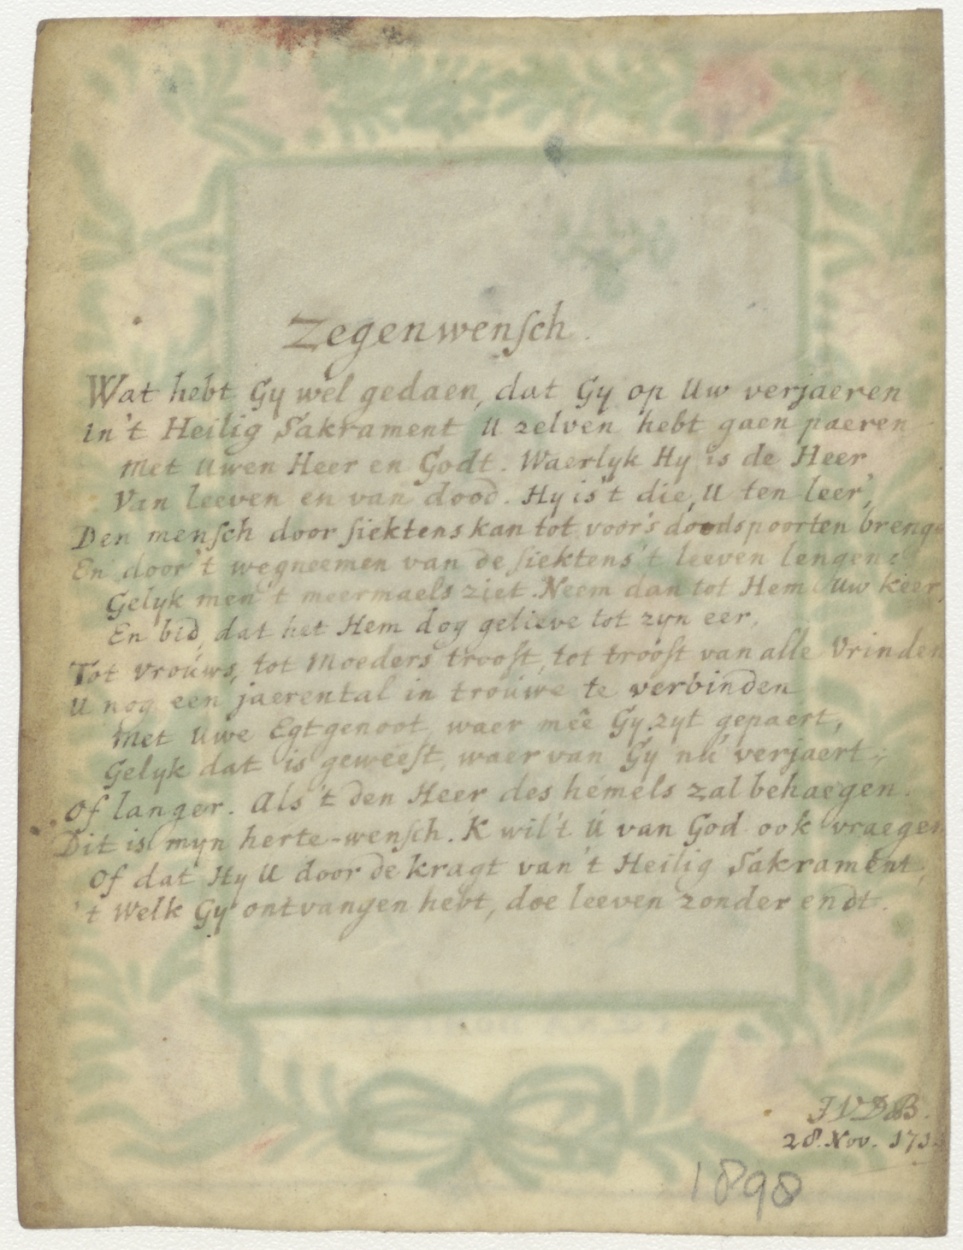 Zegenwensch.
Wat hebt Gy wel gedaen, dat Gy op Uw verjaeren
in't Heilig Sakrament U zelven hebt gaen paeren
Met Uwen Heer en Godt. Waerlyk Hy is de Heer
Van leeven en van dood. Hy is't die, U ten leer,
Den mensch door siektens kan tot voor's doodspoorten breng
En door't wegneemen van de siektens't leeven lengen:
Gelyk men't meermaels ziet. Neem dan tot Hem Uw keer
En bid, dat het Hem dog gelieve tot zyn eer,
Tot vrouws, tot Moeders troost, tot troost van alle Vrinden
U nog een jaerental in trouwe te verbinden
Met Uwe Egtgenoot, waer meê Gy zyt gepaert,
Gelyk dat is geweest, waer van Gy nu verjaert;
Of langer. Als 't den Heer des hemels zal behaegen.
Dit is myn herte-wensch. K wil't U van God ook vraegen
Of dat Hy U door de kragt van't Heilig Sakrament,
't Welk Gy ontvangen hebt, doe leeven zonder endt.
J V D B.
28. Nov. 171
1898